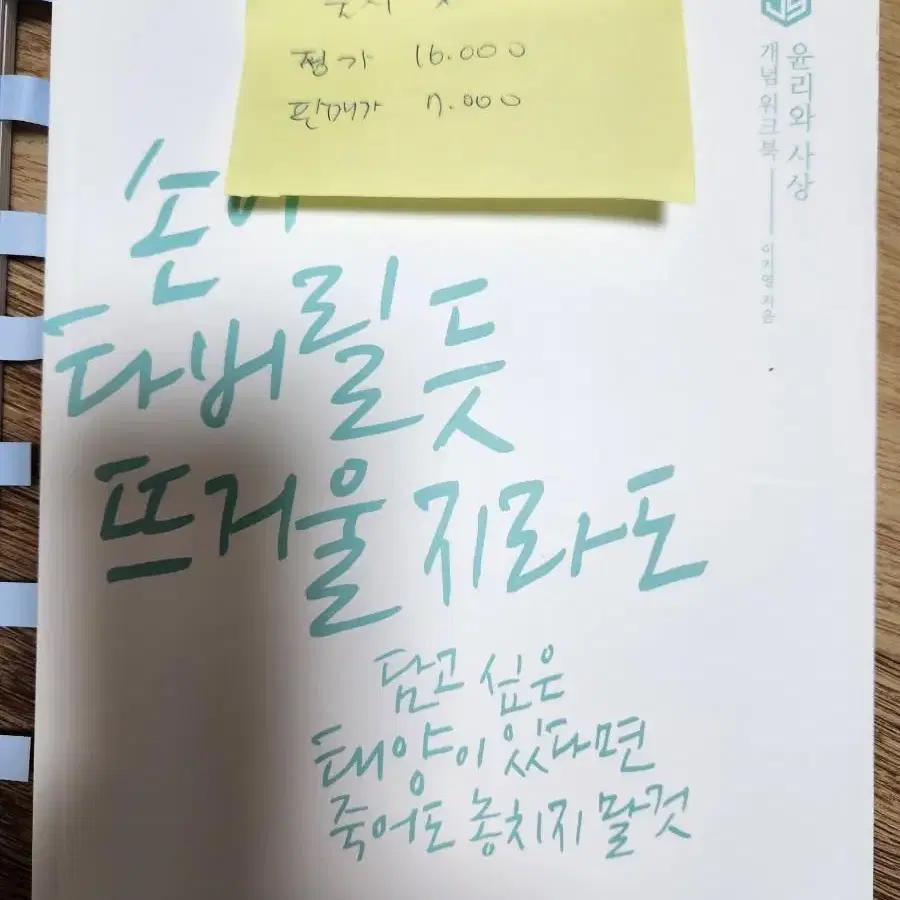 정가 16.000
판매가 7.000
윤리와 사상
개념 워크북
이지영 지음
손이
타버릴 듯
뜨거울지라도
담고 싶은
태양이 있다면
죽어도 놓치지 말것